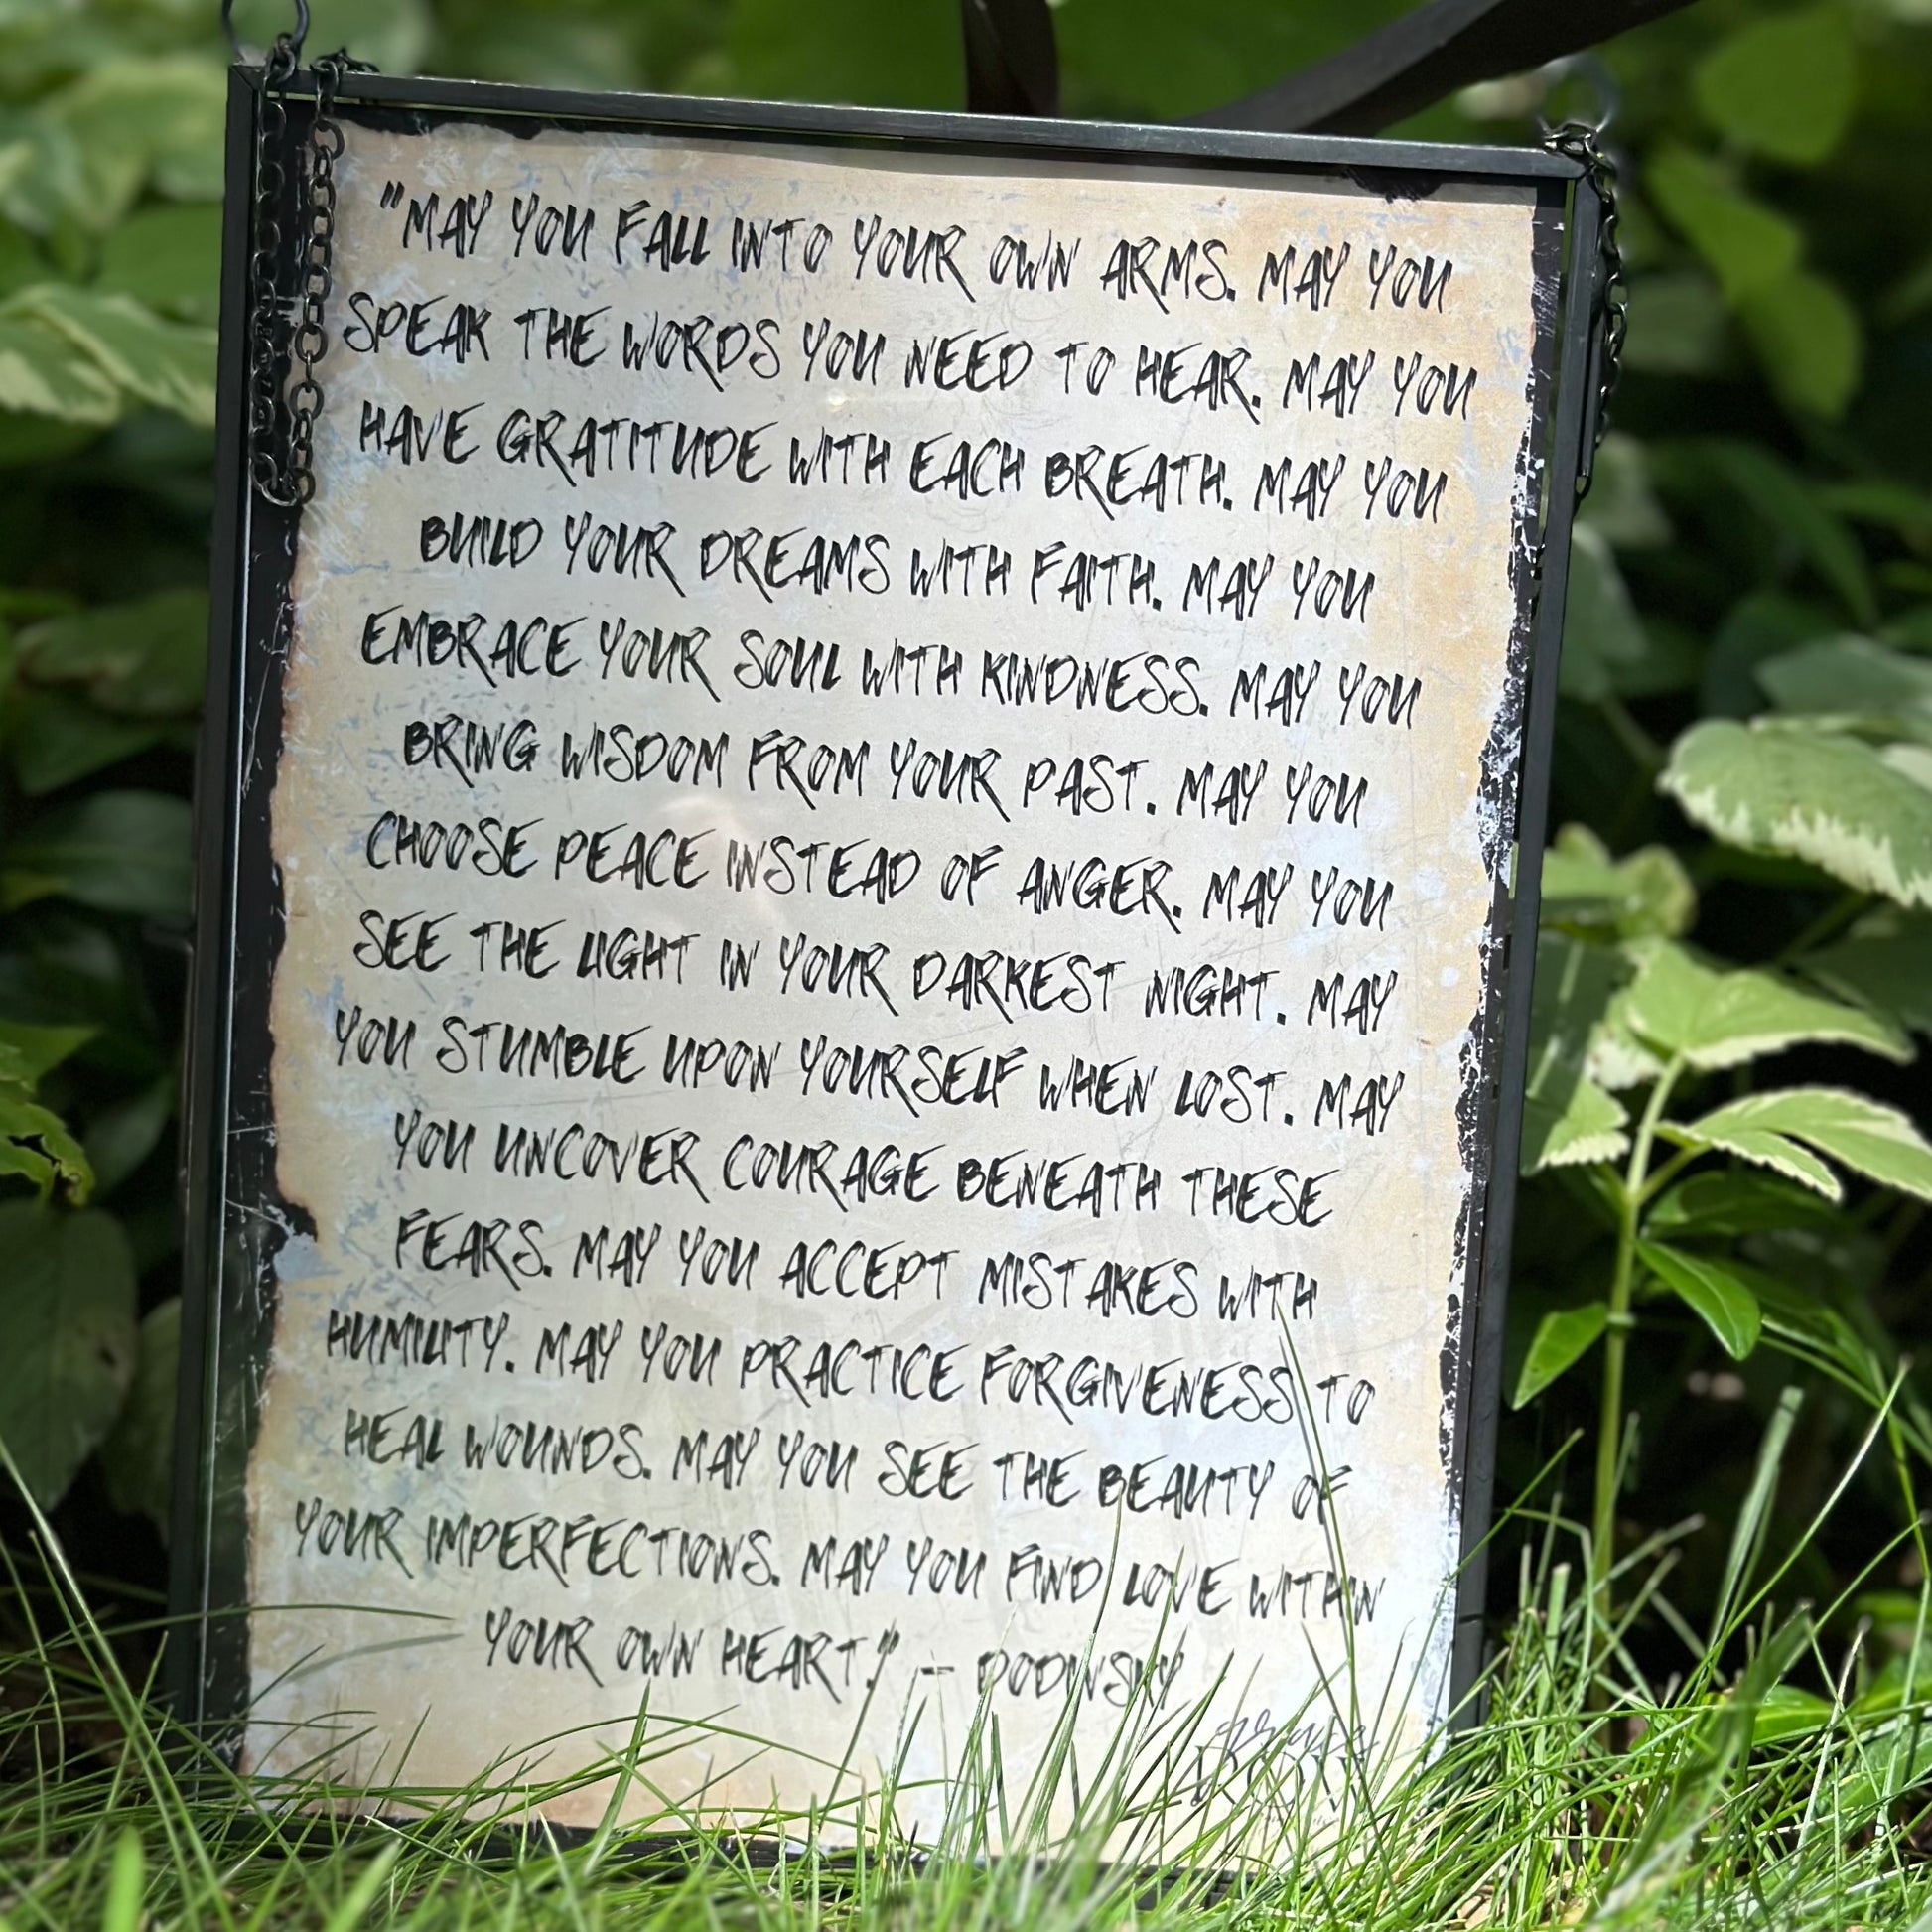 "MAY YOU FALL INTO YOUR OWN ARMS. MAY YOU
SPEAK THE WORDS YOU NEED TO HEAR. MAY YOU
HAVE GRATITUDE WITH EACH BREATH. MAY YOU
BUILD YOUR DREAMS WITH FAITH. MAY YOU
EMBRACE YOUR SOUL WITH KINDNESS. MAY YOU
BRING WISDOM FROM YOUR PAST. MAY YOU
CHOOSE PEACE INSTEAD OF ANGER. MAY YOU
SEE THE LIGHT IN YOUR DARKEST NIGHT. MAY
YOU STUMBLE UPON YOURSELF WHEN LOST. MAY
YOU UNCOVER COURAGE BENEATH THESE
FEARS. MAY YOU ACCEPT MISTAKES WITH
HUMILITY. MAY YOU PRACTICE FORGIVENESS TO
HEAL WOUNDS. MAY YOU SEE THE BEAUTY OF
YOUR IMPERFECTIONS. MAY YOU FIND LOVE WITHIN
YOUR OWN HEART." - DODINSKY